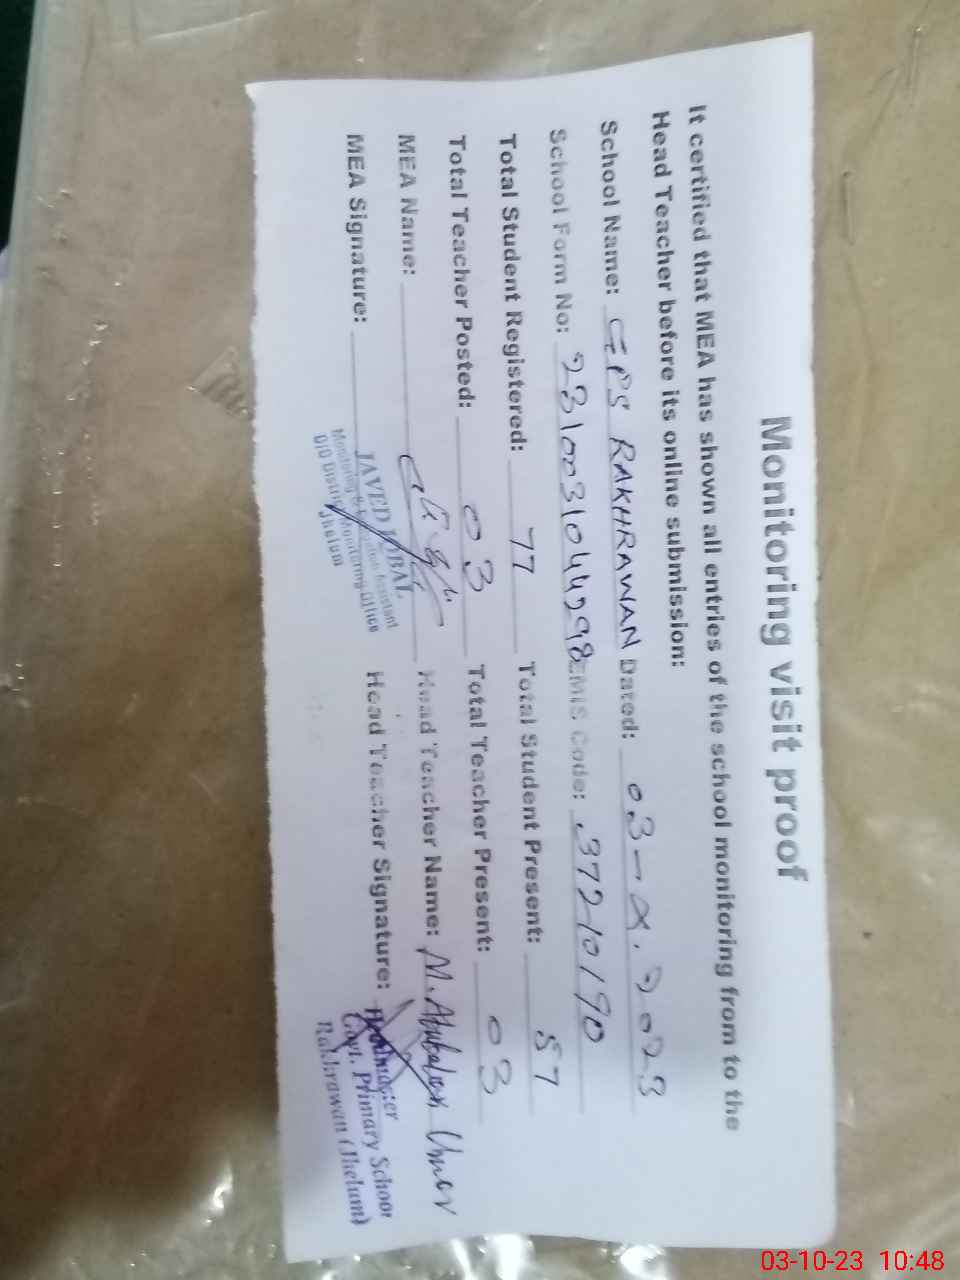 Monitoring visit proof
It certified that MEA has shown all entries of the school monitoring from to the
Head Teacher before its online submission:
School Name: GPS RAKHRAWAN Dated: 03-X.2023
School Form No: 2310031044298 EMIS Code: 37210190
Total Student Registered: 77 Total Student Present: 57
Total Teacher Posted: 03 Total Teacher Present: 03
MEA Name: Head Teacher Name: M. Abubakar Umer
MEA Signature: Head Teacher Signature:
JAVED IQBAL
Monitoring & Evaluation Assistant
O/O District Monitoring Office
Jhelum
Headmaster
Govt. Primary School
Rakhrawan (Jhelum)
03-10-23 10:48